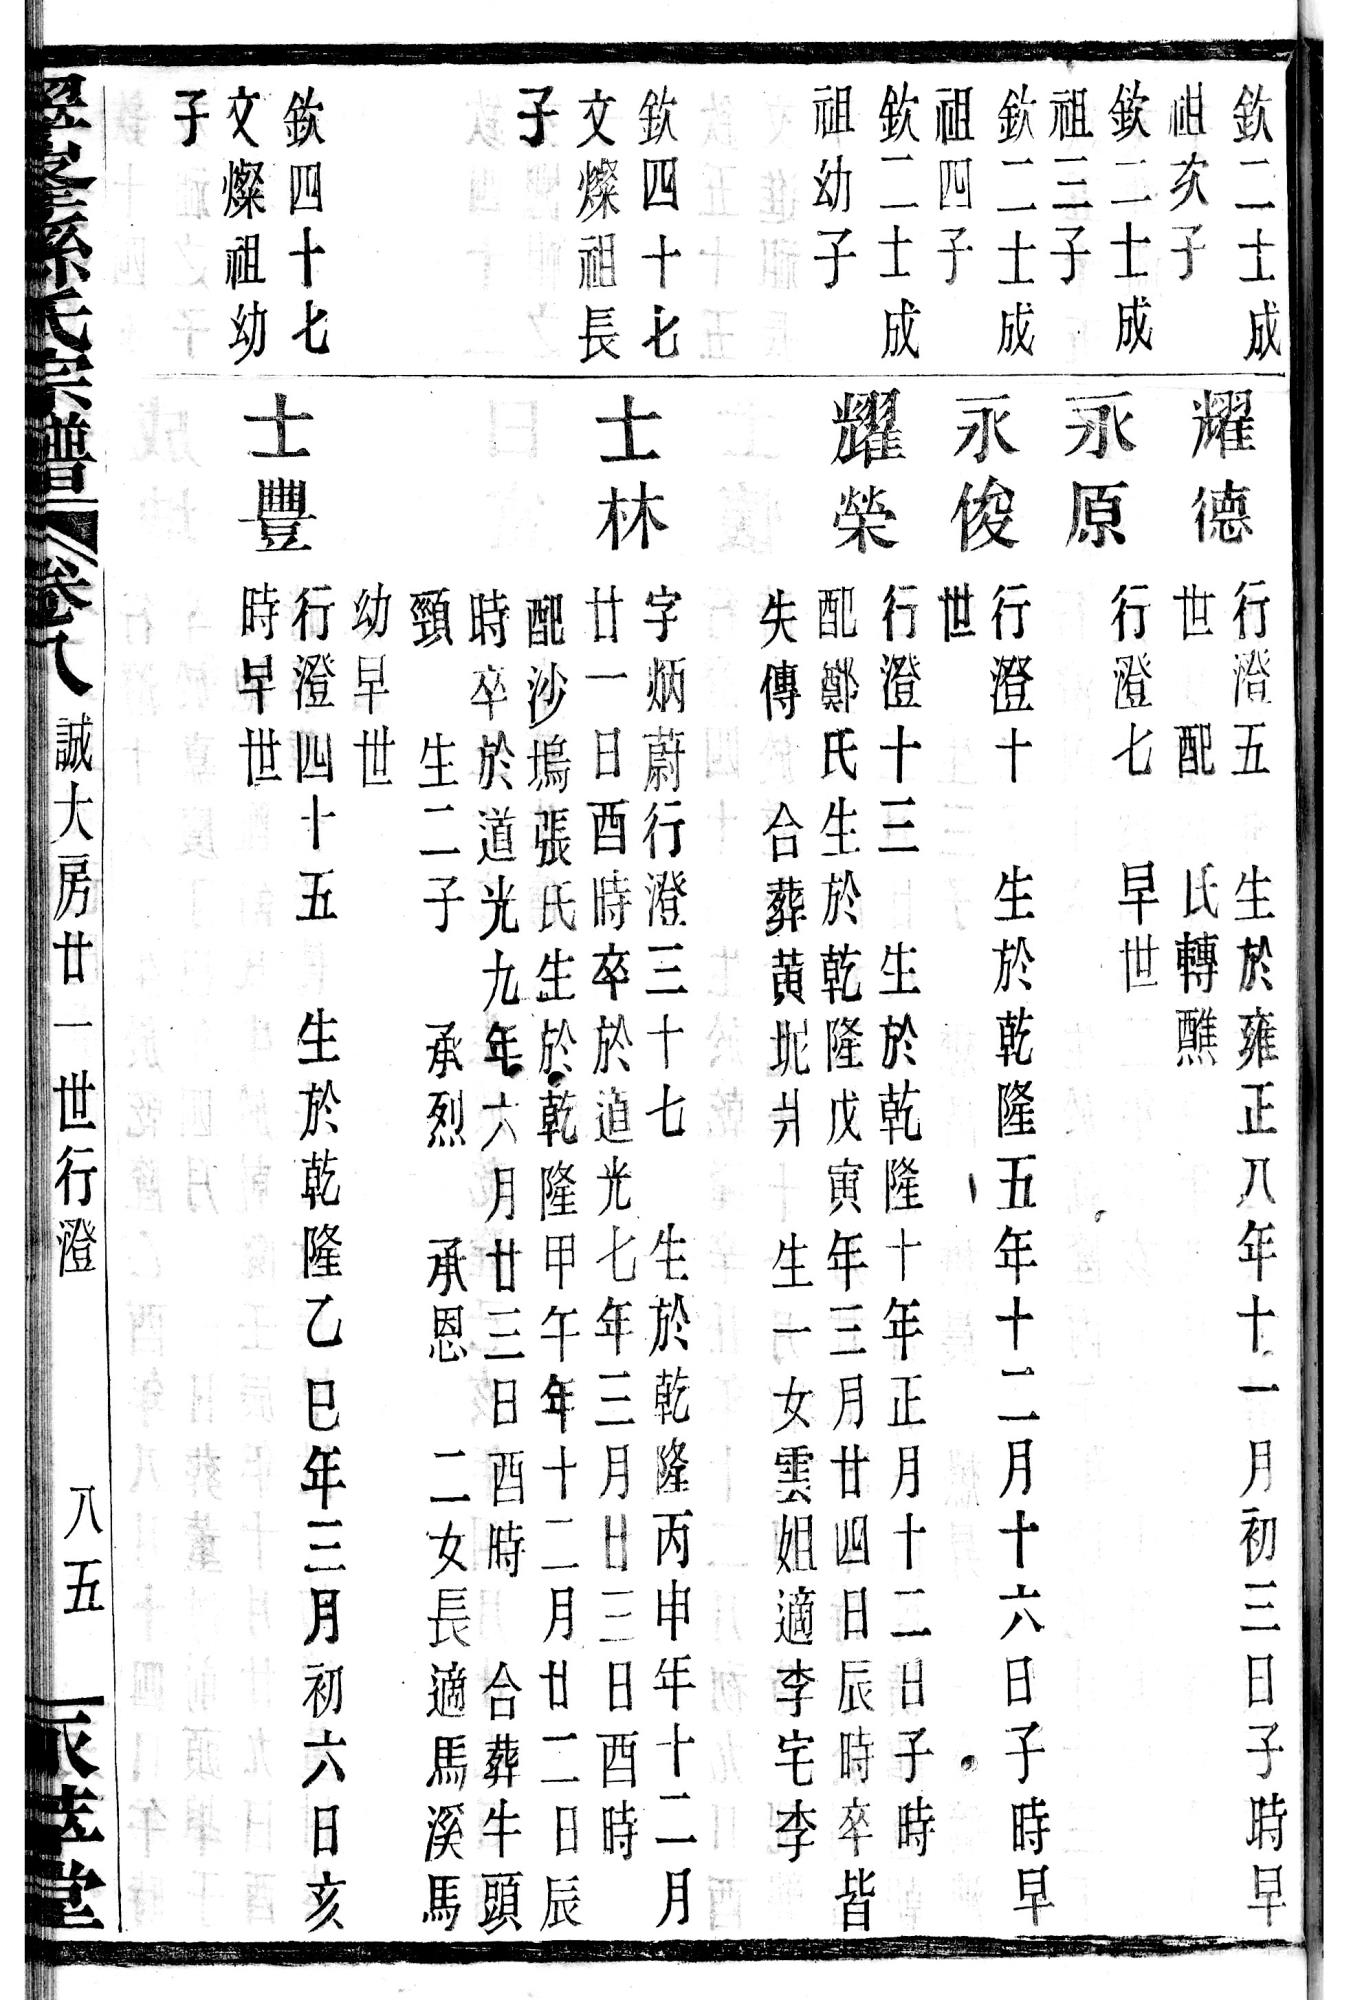 欽二士成
祖次子
耀德
行澄五 生於雍正八年十一月初三日子時早
世 配 氏轉醮
欽二士成
祖三子
永原
行澄七 早世
欽二士成
祖四子
永俊
行澄十 生於乾隆五年十二月十六日子時早
世
欽二士成
祖幼子
耀榮
行澄十三 生於乾隆十年正月十二日子時
配鄭氏生於乾隆戊寅年三月廿四日辰時卒皆
失傳 合葬黃坭爿 生一女雲姐適李宅李
欽四十七
文燦祖長
子
士林
字炳蔚行澄三十七 生於乾隆丙申年十二月
廿一日酉時卒於道光七年三月廿三日酉時
配沙塢張氏生於乾隆甲午年十二月廿二日辰
時卒於道光九年六月廿三日酉時 合葬牛頭
頸 生二子 承烈 承恩 二女長適馬溪馬
幼早世
欽四十七
文燦祖幼
子
士豐
行澄四十五 生於乾隆乙巳年三月初六日亥
時早世
孫氏宗譜 卷八 誠大房廿一世行澄 八五 永萃堂